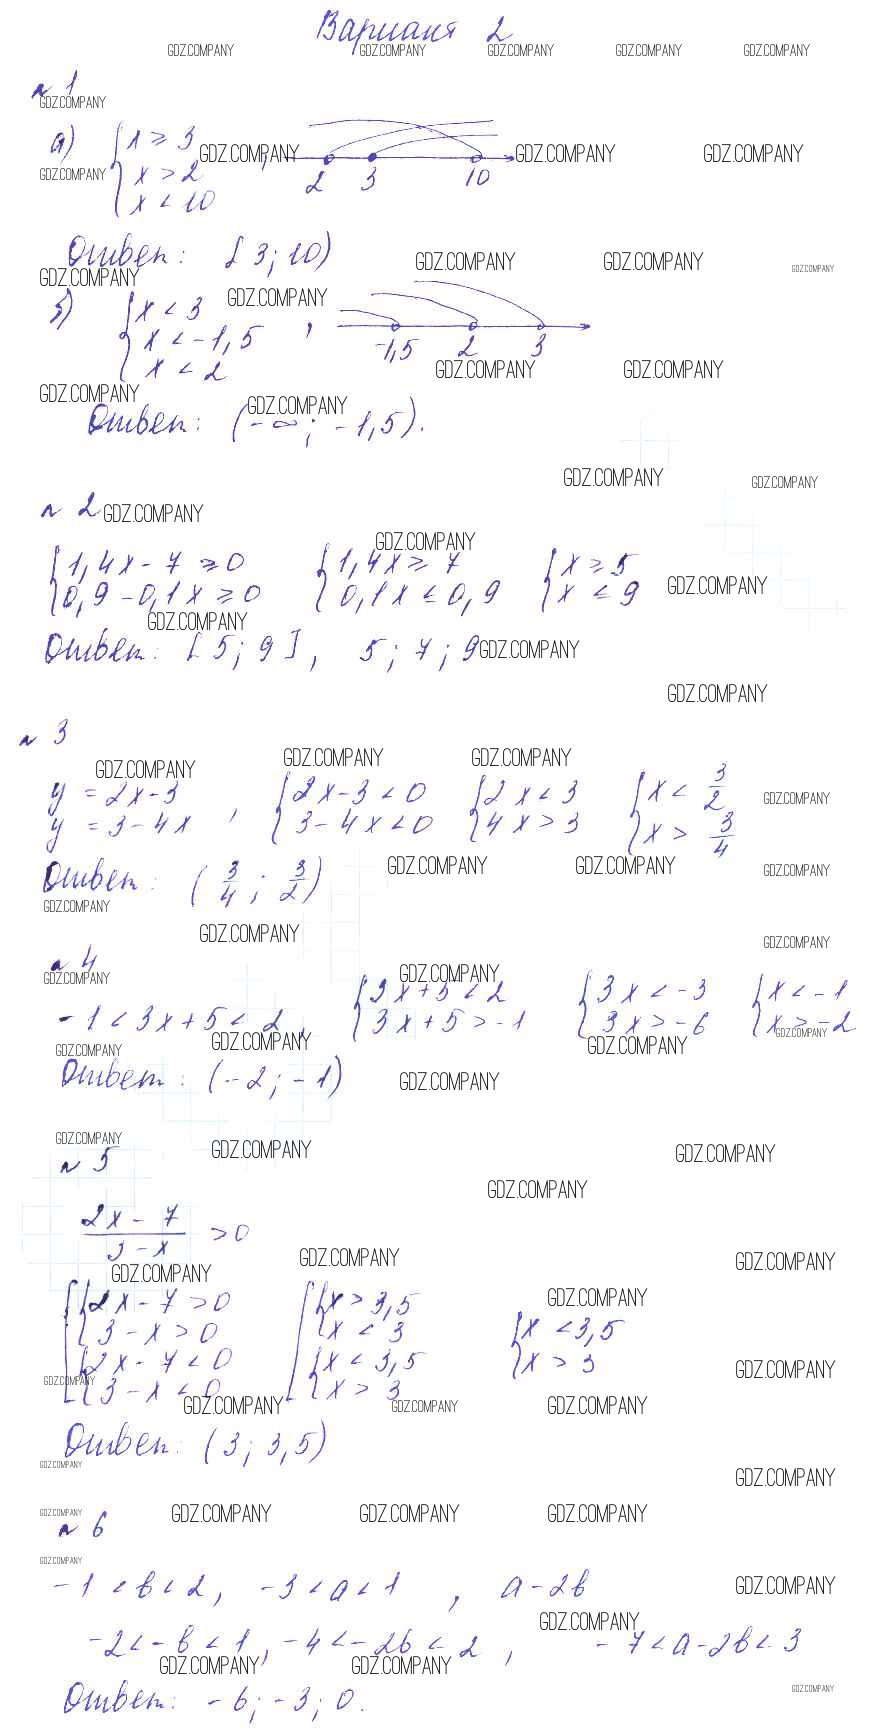 Вариант 2
GDZ.COMPANY GDZ.COMPANY GDZ.COMPANY GDZ.COMPANY GDZ.COMPANY
№ 1
GDZ.COMPANY
а) { x ≥ 3
GDZ.COMPANY , GDZ.COMPANY GDZ.COMPANY
GDZ.COMPANY x > 2 2 3 10
x < 10
Ответ: [3; 10)
GDZ.COMPANY GDZ.COMPANY GDZ.COMPANY
GDZ.COMPANY
б) { x < 3 GDZ.COMPANY
x < -1,5 , -1,5 2 3
x < 2 GDZ.COMPANY GDZ.COMPANY
GDZ.COMPANY GDZ.COMPANY
Ответ: (-∞; -1,5).
GDZ.COMPANY GDZ.COMPANY
№ 2 GDZ.COMPANY
GDZ.COMPANY
{ 1,4x - 7 ≥ 0 { 1,4x ≥ 7 { x ≥ 5
0,9 - 0,1x ≥ 0 0,1x ≤ 0,9 x ≤ 9 GDZ.COMPANY
GDZ.COMPANY
Ответ: [5; 9], 5; 7; 9 GDZ.COMPANY
GDZ.COMPANY
№ 3
GDZ.COMPANY GDZ.COMPANY GDZ.COMPANY
y = 2x-3 { 2x-3 < 0 { 2x < 3 { x < 3/2 GDZ.COMPANY
y = 3-4x , 3-4x < 0 4x > 3 x > 3/4
Ответ: (3/4; 3/2) GDZ.COMPANY GDZ.COMPANY GDZ.COMPANY
GDZ.COMPANY
GDZ.COMPANY GDZ.COMPANY
№ 4
GDZ.COMPANY GDZ.COMPANY
{ 3x+5 < 2 { 3x < -3 { x < -1
-1 < 3x+5 < 2, 3x+5 > -1 3x > -6 x > -2
GDZ.COMPANY GDZ.COMPANY GDZ.COMPANY GDZ.COMPANY
Ответ: (-2; -1) GDZ.COMPANY
GDZ.COMPANY GDZ.COMPANY GDZ.COMPANY
№ 5
GDZ.COMPANY
(2x - 7)/(3 - x) > 0
GDZ.COMPANY GDZ.COMPANY GDZ.COMPANY
[ { 2x - 7 > 0 [ { x > 3,5 GDZ.COMPANY
3 - x > 0 x < 3 { x < 3,5
{ 2x - 7 < 0 { x < 3,5 x > 3 GDZ.COMPANY
3 - x < 0 x > 3
GDZ.COMPANY GDZ.COMPANY GDZ.COMPANY GDZ.COMPANY
Ответ: (3; 3,5)
GDZ.COMPANY GDZ.COMPANY
GDZ.COMPANY GDZ.COMPANY GDZ.COMPANY GDZ.COMPANY
№ 6
GDZ.COMPANY
-1 < b < 2, -3 < a < 1, a - 2b GDZ.COMPANY
GDZ.COMPANY
-2 < -b < 1, -4 < -2b < 2, -7 < a - 2b < 3
GDZ.COMPANY GDZ.COMPANY
Ответ: -6; -3; 0. GDZ.COMPANY